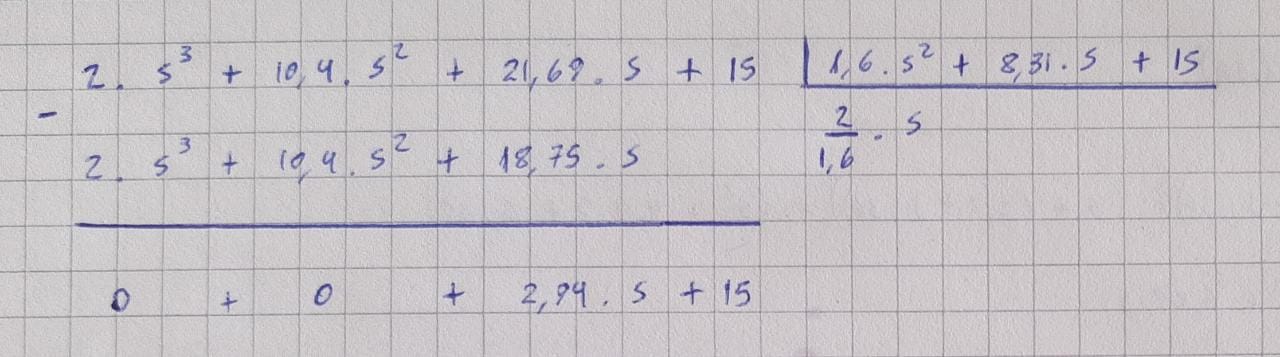 2. s³ + 10,4. s² + 21,69. s + 15 | 1,6. s² + 8,31. s + 15
- 2. s³ + 10,4. s² + 18,75. s 2/1,6 . s
0 + 0 + 2,94. s + 15